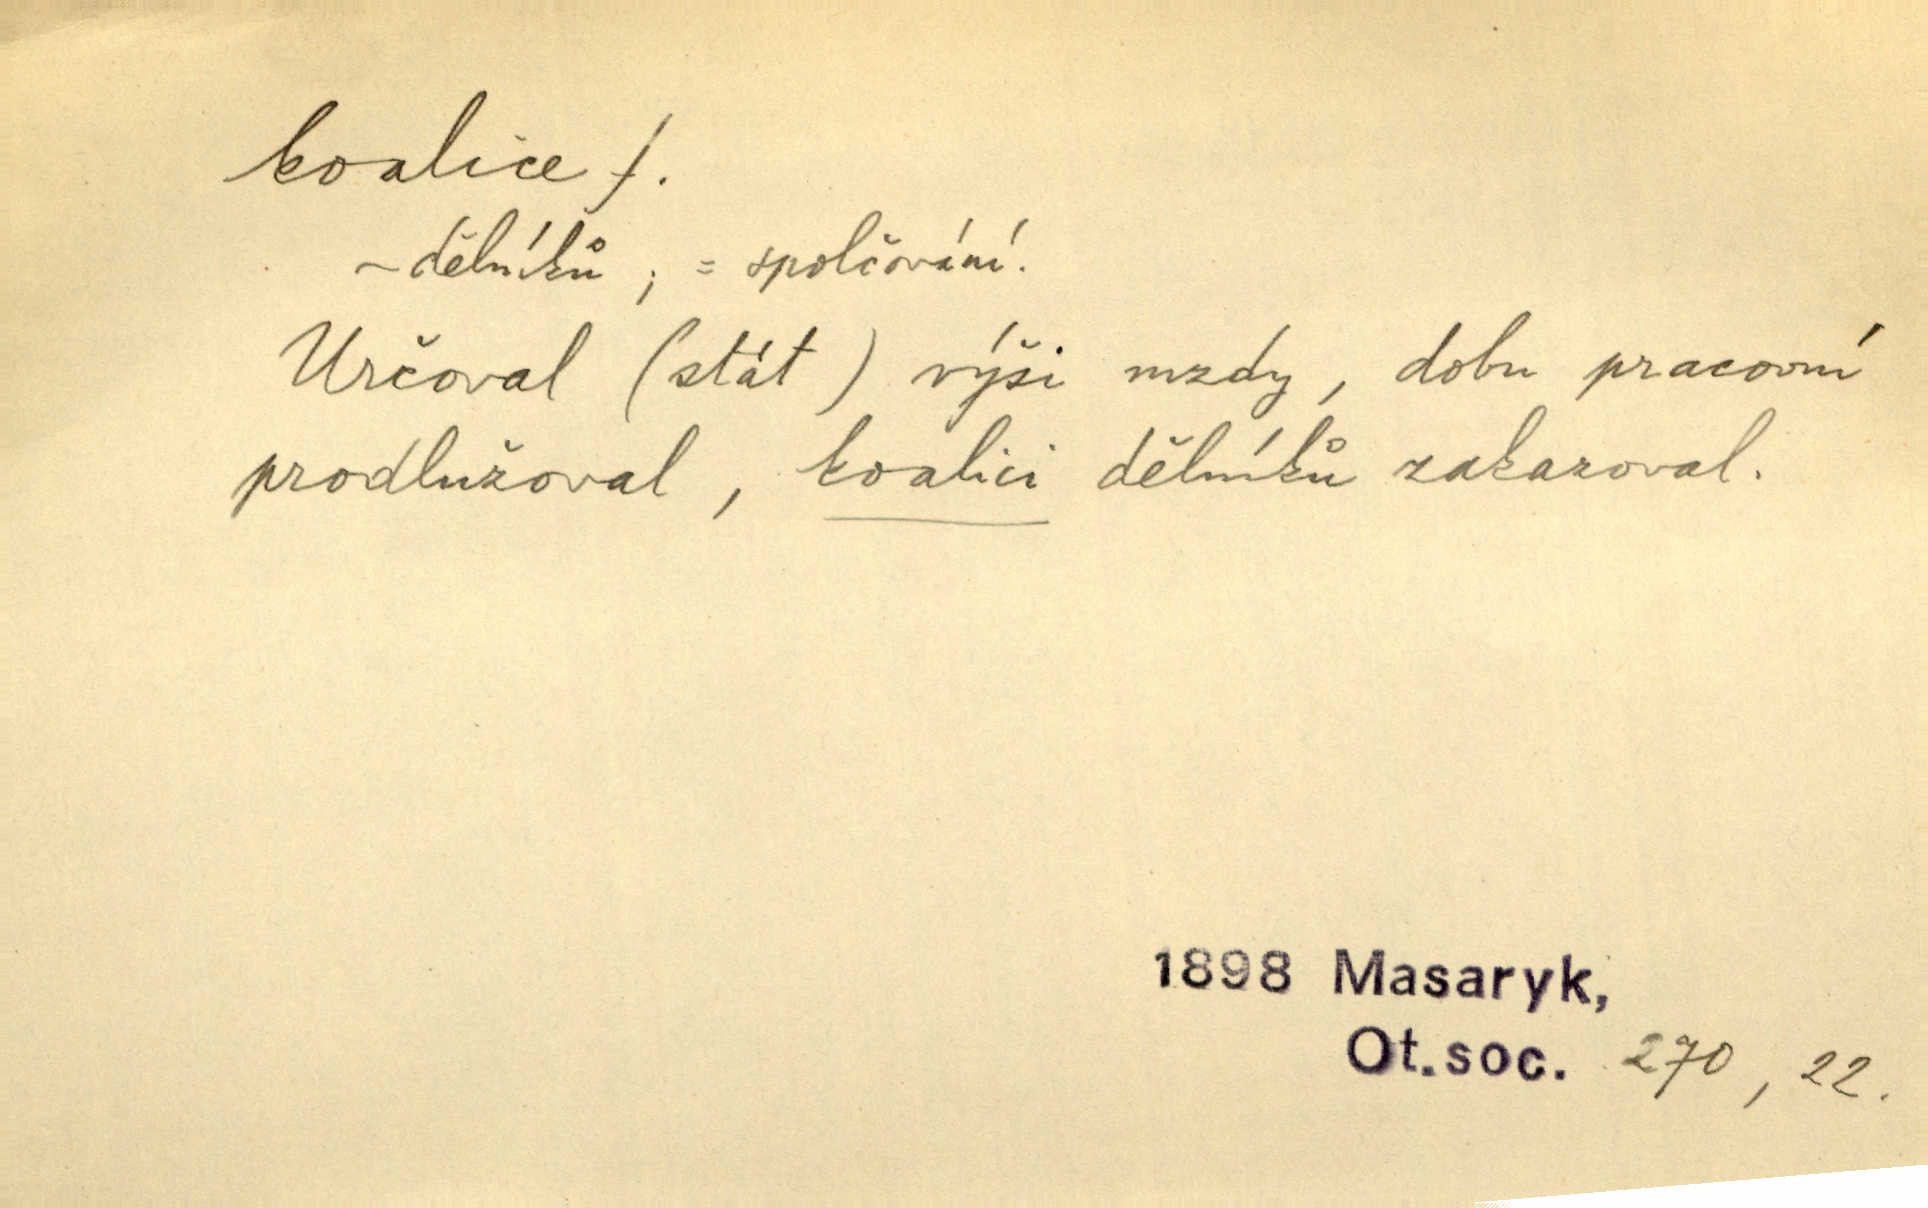 koalice f.
~ dělníků ; = spolčování.
Určoval (stát) výši mzdy, dobu pracovní
prodlužoval, koalici dělníků zakazoval.
1898 Masaryk,
Ot. soc. 270, 22.